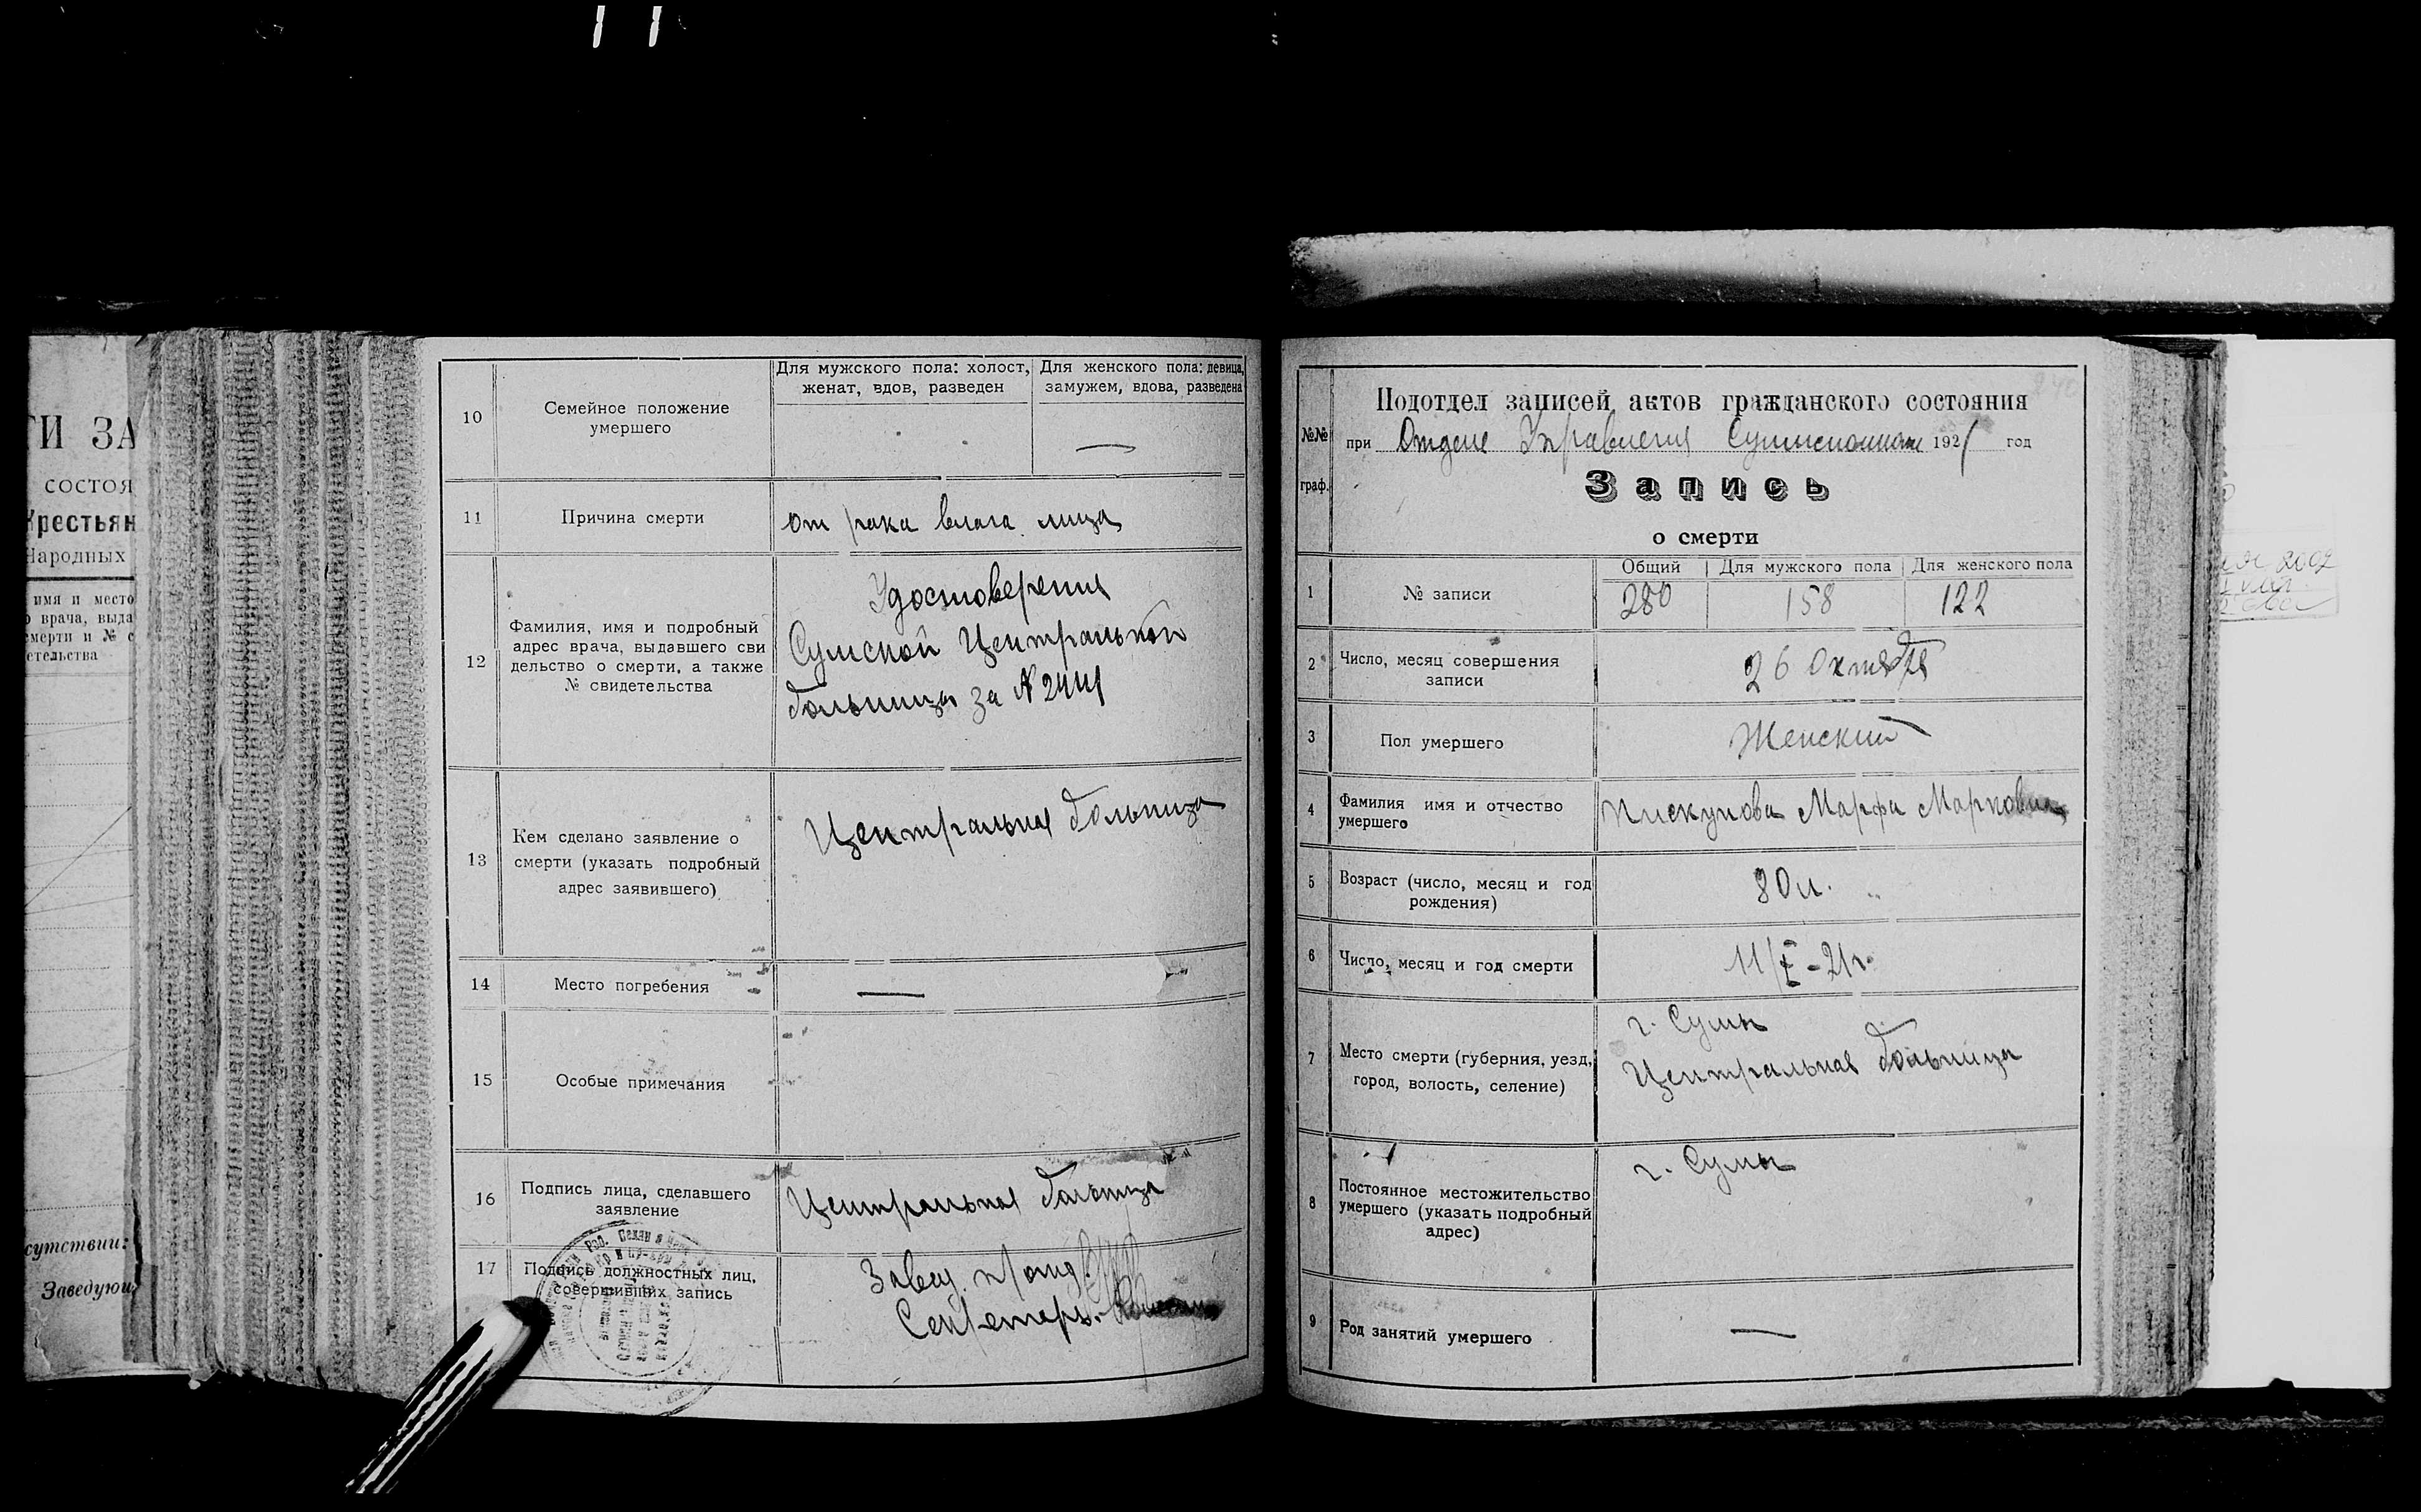 ТИ ЗА
состоя
Крестьян
Народных
имя и место
врача, выда
смерти и № с
етельства
сутствии:
Заведую
10
Семейное положение
умершего
Для мужского пола: холост,
женат, вдов, разведен
Для женского пола: девица,
замужем, вдова, разведена
—
11
Причина смерти
от рака влага лища
12
Фамилия, имя и подробный
адрес врача, выдавшего сви
дельство о смерти, а также
№ свидетельства
Удостоверения
Сумской Центральной
больницы за № 2441
13
Кем сделано заявление о
смерти (указать подробный
адрес заявившего)
Центральная больница
14
Место погребения
—
15
Особые примечания
16
Подпись лица, сделавшего
заявление
Центральная больница
17
Подпись должностных лиц,
совершивших запись
Завед. п/отд.
Секретарь
Подотдел записей актов гражданского состояния
№№
граф.
при Отделе Управления 1921 год
Запись
о смерти
1
№ записи
Общий
Для мужского пола
Для женского пола
280
158
122
2
Число, месяц совершения
записи
26 Октября
3
Пол умершего
Женский
4
Фамилия имя и отчество
умершего
Пискунова Марфа Марковна
5
Возраст (число, месяц и год
рождения)
80 л.
6
Число, месяц и год смерти
11/X - 21 г.
7
Место смерти (губерния, уезд,
город, волость, селение)
г. Сумы
Центральная больница
8
Постоянное местожительство
умершего (указать подробный
адрес)
г. Сумы
9
Род занятий умершего
—